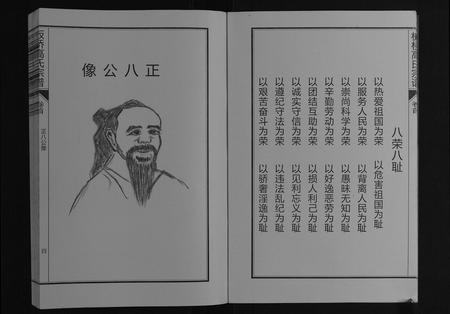 八荣八耻
以热爱祖国为荣 以危害祖国为耻
以服务人民为荣 以背离人民为耻
以崇尚科学为荣 以愚昧无知为耻
以辛勤劳动为荣 以好逸恶劳为耻
以团结互助为荣 以损人利己为耻
以诚实守信为荣 以见利忘义为耻
以遵纪守法为荣 以违法乱纪为耻
以艰苦奋斗为荣 以骄奢淫逸为耻
正八公像
正八公像
四